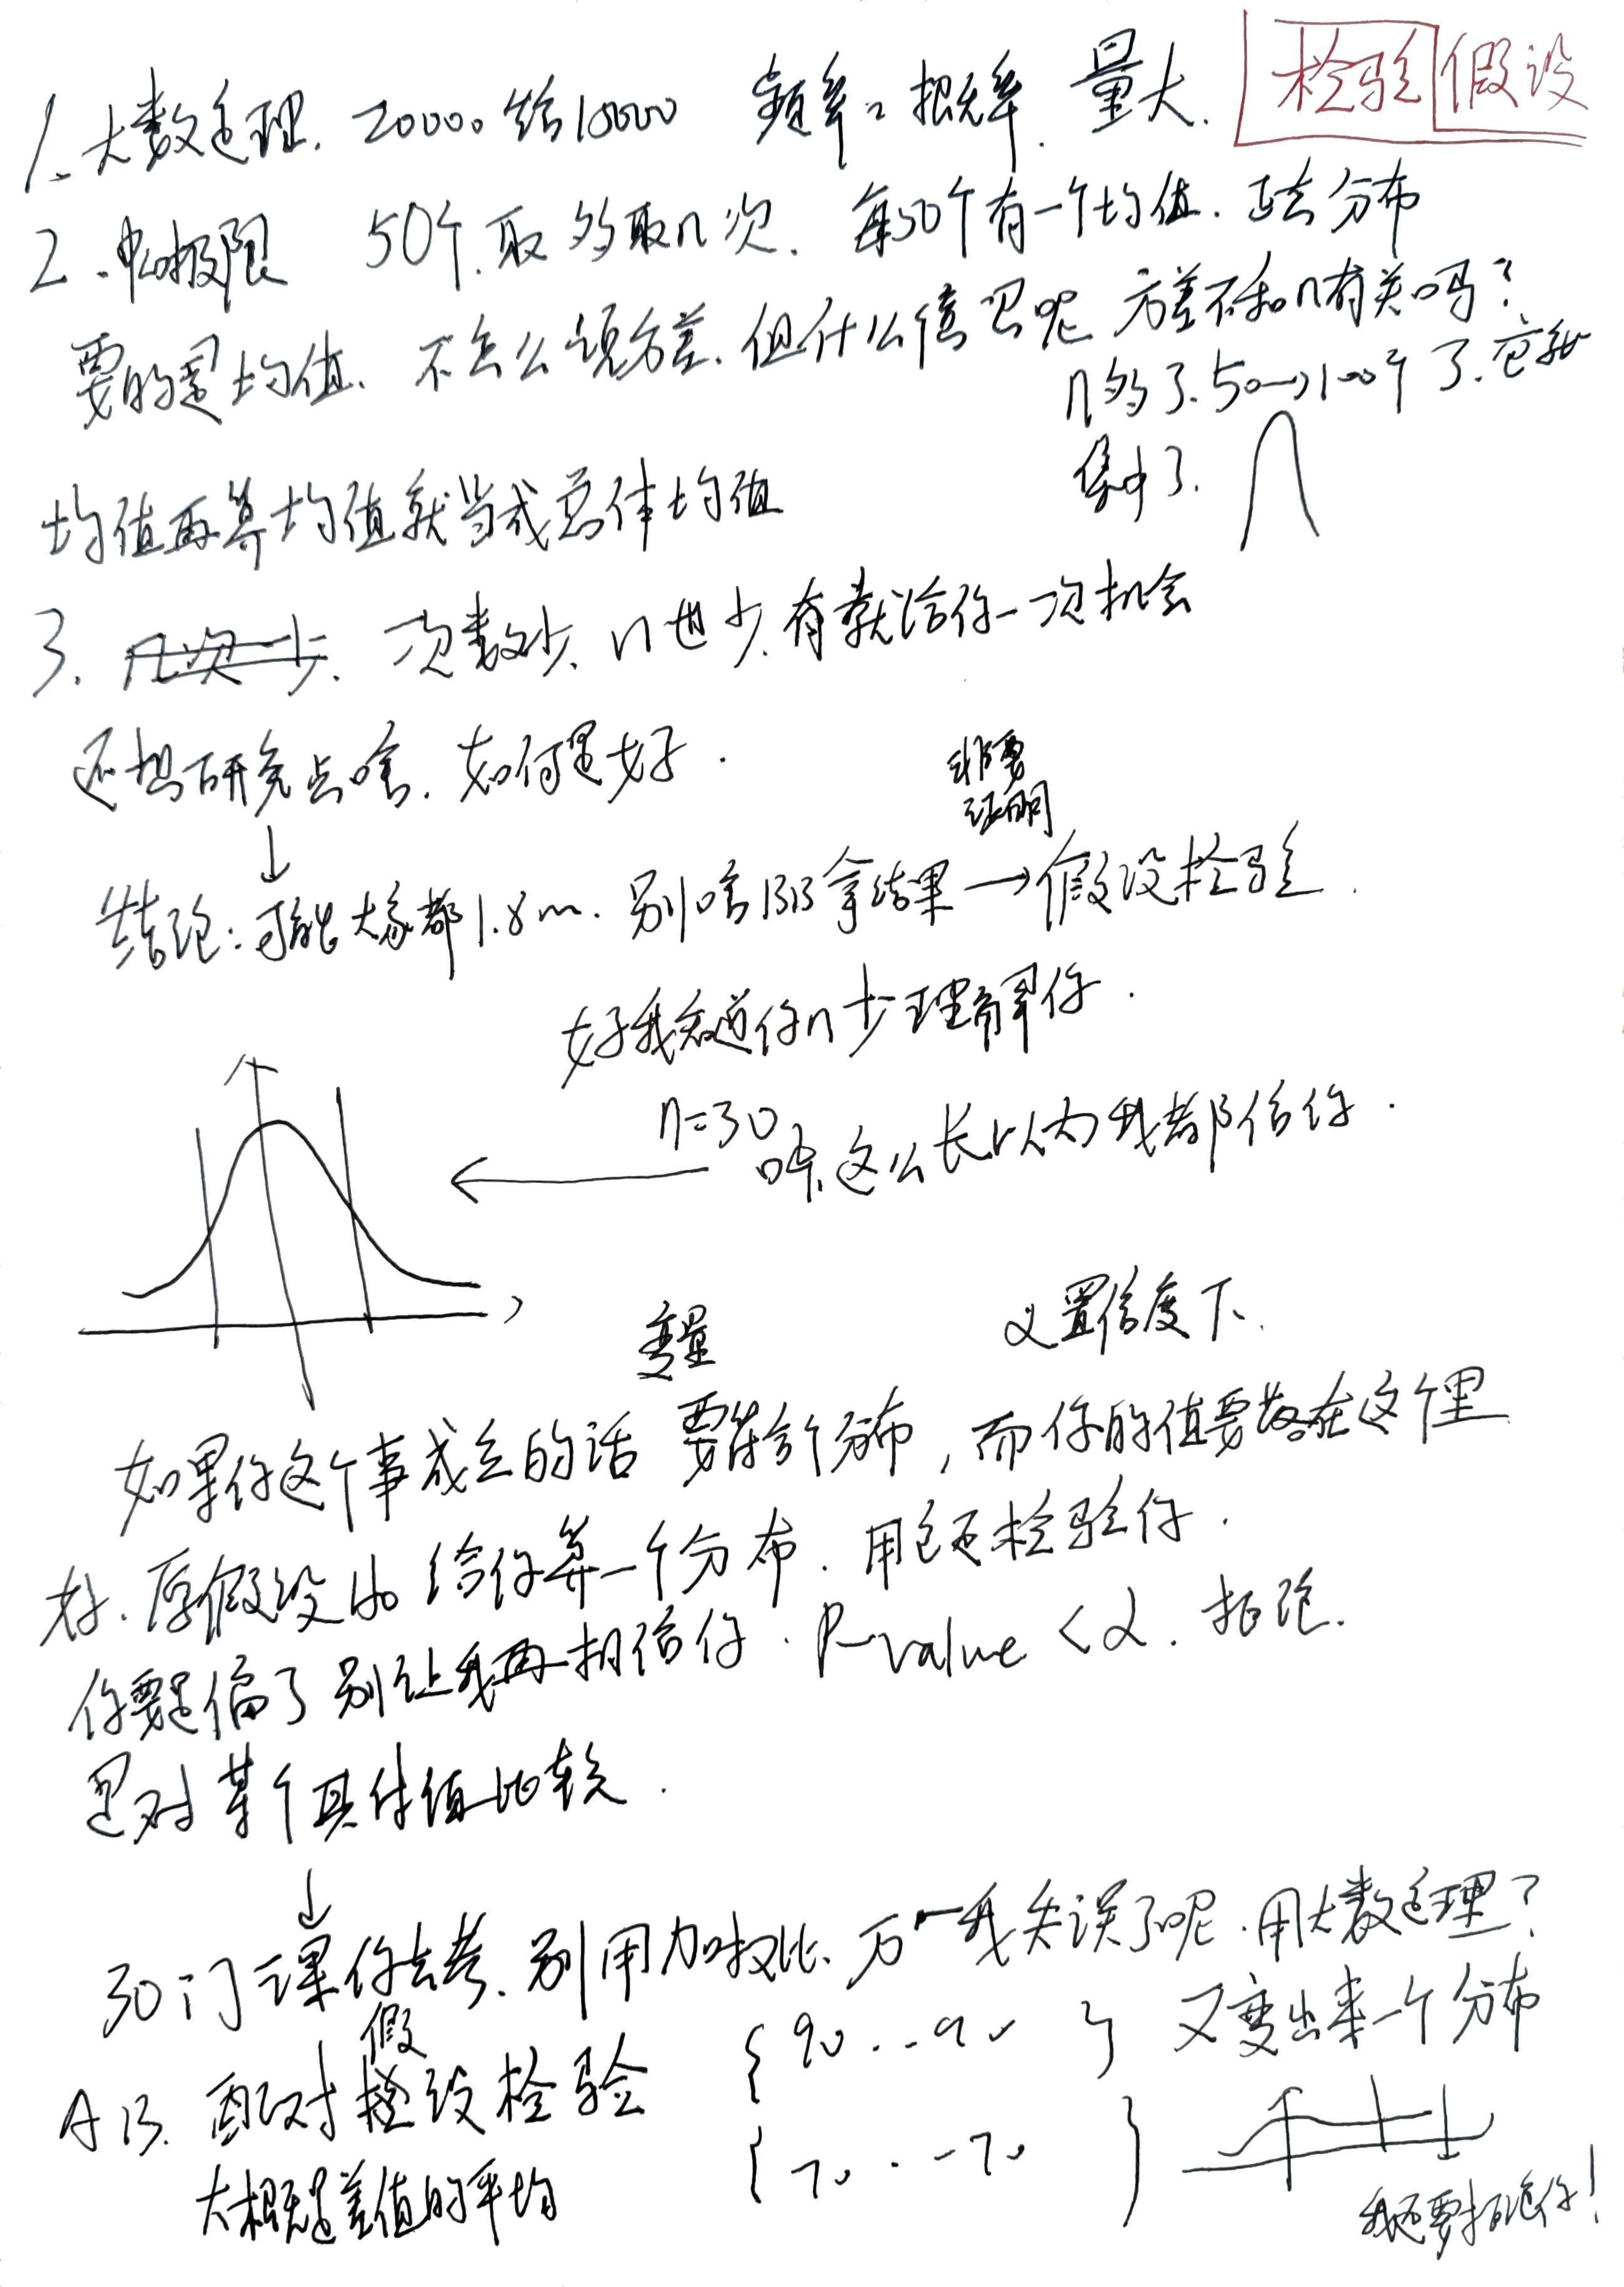 检验假设
1. 大数定理. 20000 给10000 频率=概率. 量大.
2. 中心极限 50个.取 多取n次. 每50个有一个均值. 正态分布
要的是均值. 不怎么说方差. 但什么信息呢 方差不和n有关吗?
n多了. 50→100个了.它就
集中了.
均值再算均值就当成总体均值
3. 次数少. n也少. 有就给你一次机会
还想研究点啥. 如何是好.
↓
非要
证明
结论: 可能大家都1.8m. 别啥BB拿结果→假设检验.
好我知道你n少理解你.
n=30
← 嗱.这么长以内我都信你.
变量 α置信度下.
如果你这个事成立的话 要符合个分布, 而你的值要落在这个里
好. 原假设H0 给你算一个分布. 用它还检验你.
你要是偏了别让我再相信你. P-value <α. 拒绝.
是对某个具体值比较.
↓
30门课你去考. 别用加权比. 万一我失误了呢. 用大数定理?
假
A B. 配对设检验 {90...90 } 又变出来一个分布
{70...70 }
大概是差值的平均
我还要拒绝你!